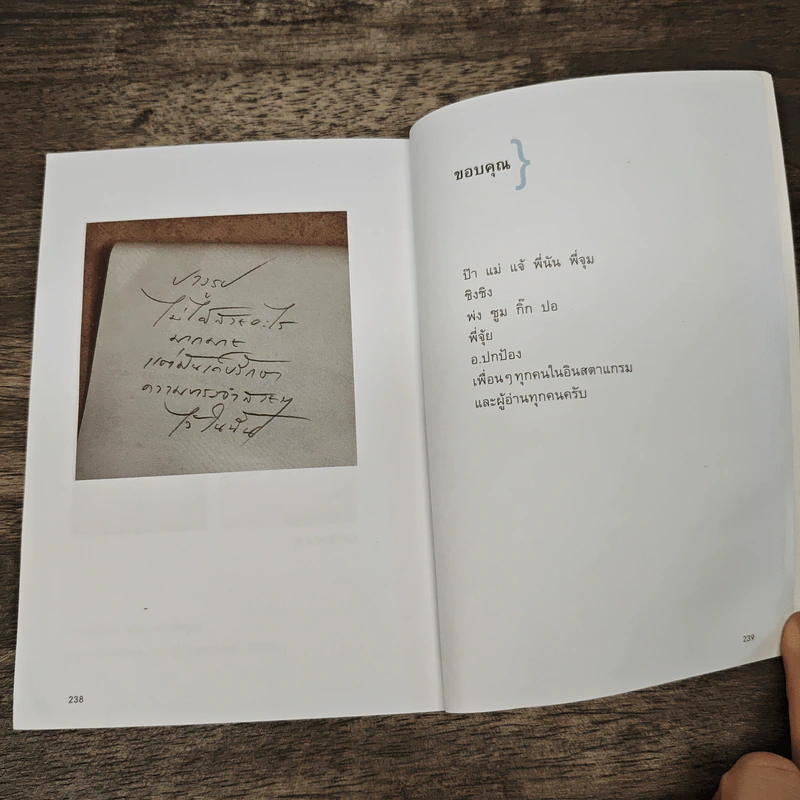 บางรูป
ไม่ได้สวยอะไร
มากมาย
แต่มันเก็บรักษา
ความทรงจำสวยๆ
ไว้ในนั้น
238
ขอบคุณ }
ป๊า แม่ แจ้ พี่นัน พี่จุม
ซิงซิง
พ่ง ซูม กิ๊ก ปอ
พี่จุ้ย
อ.ปกป้อง
เพื่อนๆทุกคนในอินสตาแกรม
และผู้อ่านทุกคนครับ
239